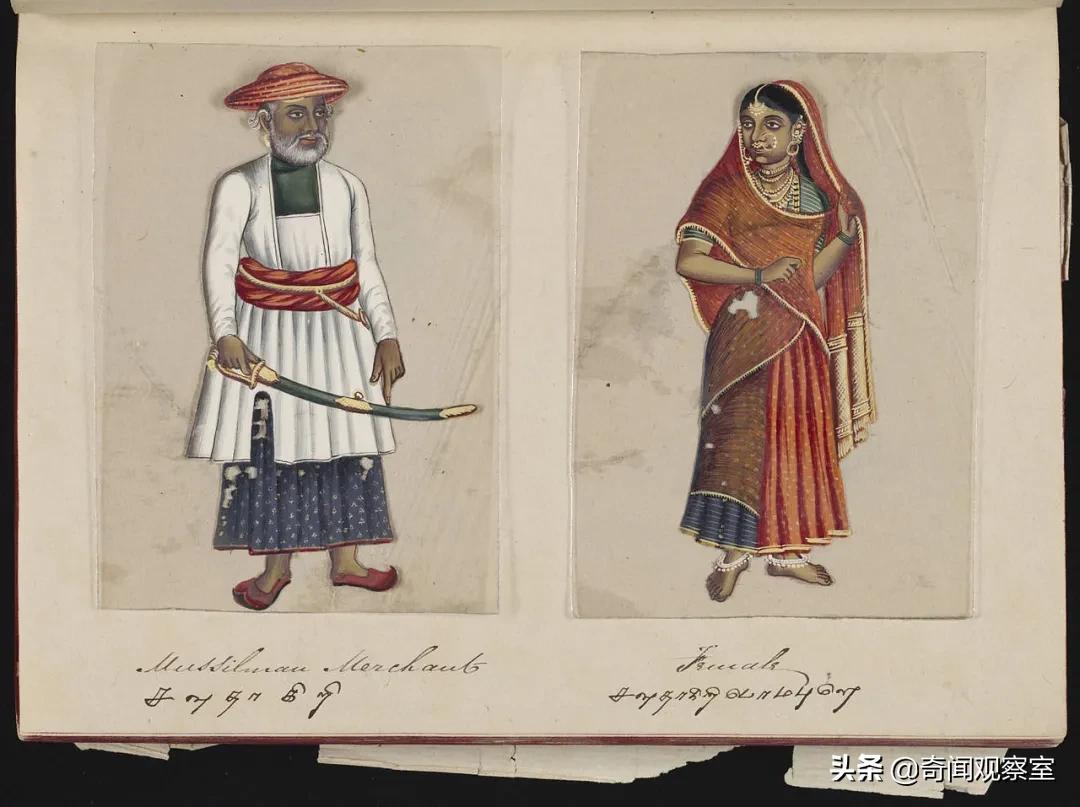 Mussilman Merchant
Female
சவுதாகிரி
头条 @奇闻观察室